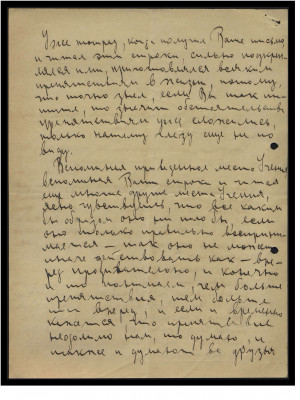 Уже теперь, когда получил Ваше письмо,
и читал эти строки, сильно подкреп-
лялся ими, приготовлялся всяким
препятствиям в жизни, потому
что точно знал, если Вы так пи-
шите, то значит обстоятельства
препятствиям уже сложились,
только нашему глазу ещё не по
виду.
Вспоминая приведенное место Учения
вспоминая Ваши строки и читая
ещё многие другие места Учения
ясно чувствовалось, что все каким
бы образом оно ни было бы, если
оно только правильно восприни-
мается — так оно не может
иначе действовать как — впе-
ред продвигательно, и конечно
и это понимаем, чем больше
препятствия, тем больше
вперед, и если и временно
кажется, что препятствие
одолело нам, то думаю, и
также и думают во друзья